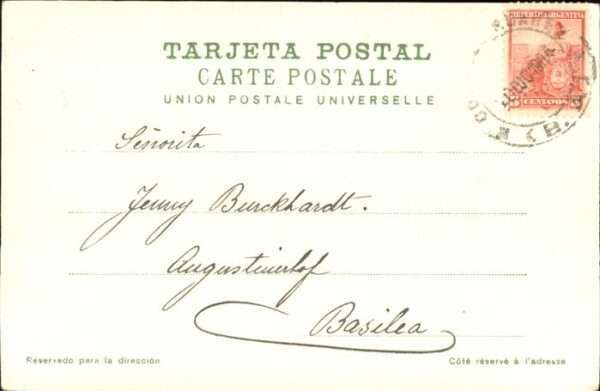 REPUBLICA ARGENTINA
5 CENTAVOS 5
TARJETA POSTAL
CARTE POSTALE
UNION POSTALE UNIVERSELLE
Señorita
Jenny Burckhardt.
Augustinerhof
Basilea
Reservado para la dirección
Côté réservé à l'adresse